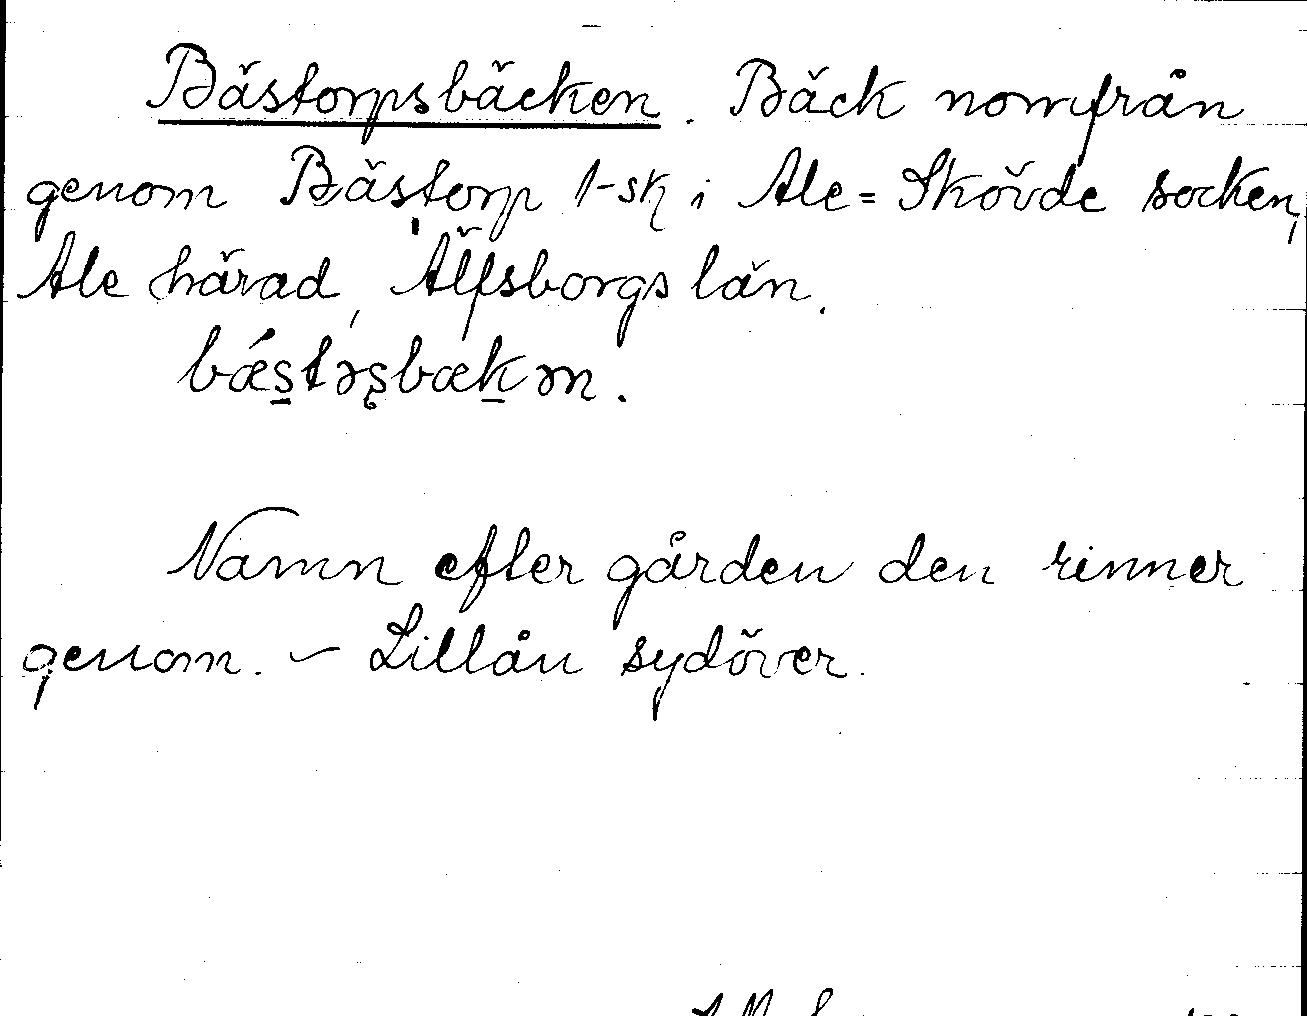 Bästorpsbäcken. Bäck norrifrån
genom Bästorp 1-sk i Ale=Skövde socken,
Ale härad, Älfsborgs län.
bǽs̠təʂbæk̠ən.
Namn efter gården den rinner
genom. – Lillån sydöver.